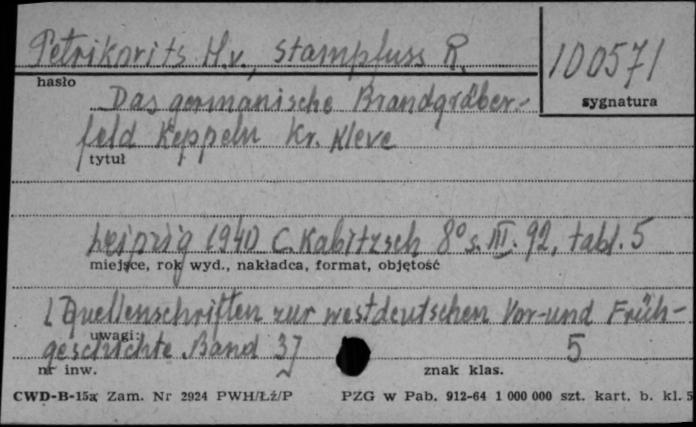 Petrikovits H.v., Stampfuss R.
100571
hasło
sygnatura
Das germanische Brandgräber-
feld Keppeln Kr. Kleve
tytuł
Leipzig 1940 C. Kabitzsch 8° s. III. 92, tabl. 5
miejsce, rok wyd., nakładca, format, objętość
[Quellenschriften zur westdeutschen Vor- und Früh-
uwagi:
geschichte Band 3]
5
nr inw.
znak klas.
CWD-B-15a Zam. Nr 2924 PWH/Łż/P PZG w Pab. 912-64 1 000 000 szt. kart. b. kl. 5